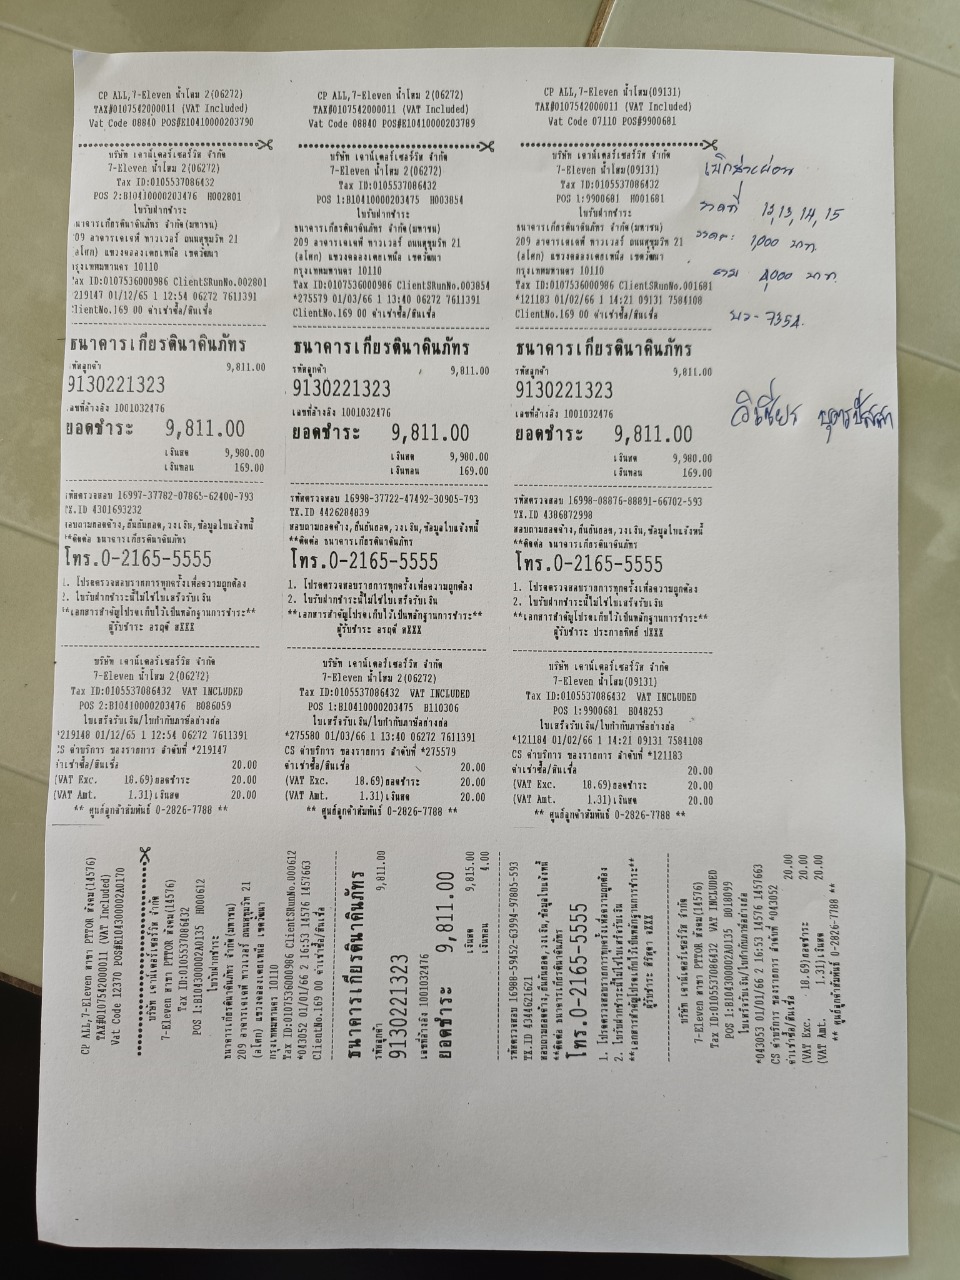 CP ALL,7-Eleven น้ำโสม 2(06272)
TAX#0107542000011 (VAT Included)
Vat Code 08840 POS#E10410000203790
บริษัท เคาน์เตอร์เซอร์วิส จำกัด
7-Eleven น้ำโสม 2(06272)
Tax ID:0105537086432
POS 2:B10410000203476 H002801
ใบรับฝากชำระ
ธนาคารเกียรตินาคินภัทร จำกัด(มหาชน)
209 อาคารเคเคพี ทาวเวอร์ ถนนสุขุมวิท 21
(อโศก) แขวงคลองเตยเหนือ เขตวัฒนา
กรุงเทพมหานคร 10110
Tax ID:0107536000986 ClientSRunNo.002801
*219147 01/12/65 1 12:54 06272 7611391
ClientNo.169 00 ค่าเช่าซื้อ/สินเชื่อ
ธนาคารเกียรตินาคินภัทร
รหัสลูกค้า 9,811.00
9130221323
เลขที่อ้างอิง 1001032476
ยอดชำระ 9,811.00
เงินสด 9,980.00
เงินทอน 169.00
รหัสตรวจสอบ 16997-37782-07865-62400-793
TX.ID 4301693232
สอบถามยอดค้าง,ยืนยันยอด,วงเงิน,ข้อมูลใบแจ้งหนี้
**ติดต่อ ธนาคารเกียรตินาคินภัทร
โทร.0-2165-5555
1. โปรดตรวจสอบรายการทุกครั้งเพื่อความถูกต้อง
2. ใบรับฝากชำระนี้ไม่ใช่ใบเสร็จรับเงิน
**เอกสารสำคัญโปรดเก็บไว้เป็นหลักฐานการชำระ**
ผู้รับชำระ อรฤดี สXXX
บริษัท เคาน์เตอร์เซอร์วิส จำกัด
7-Eleven น้ำโสม 2(06272)
Tax ID:0105537086432 VAT INCLUDED
POS 2:B10410000203476 B086059
ใบเสร็จรับเงิน/ใบกำกับภาษีอย่างย่อ
*219148 01/12/65 1 12:54 06272 7611391
CS ค่าบริการ ของรายการ ลำดับที่ *219147
ค่าเช่าซื้อ/สินเชื่อ 20.00
(VAT Exc. 18.69)ยอดชำระ 20.00
(VAT Amt. 1.31)เงินสด 20.00
** ศูนย์ลูกค้าสัมพันธ์ 0-2826-7788 **
CP ALL,7-Eleven น้ำโสม 2(06272)
TAX#0107542000011 (VAT Included)
Vat Code 08840 POS#E10410000203789
บริษัท เคาน์เตอร์เซอร์วิส จำกัด
7-Eleven น้ำโสม 2(06272)
Tax ID:0105537086432
POS 1:B10410000203475 H003854
ใบรับฝากชำระ
ธนาคารเกียรตินาคินภัทร จำกัด(มหาชน)
209 อาคารเคเคพี ทาวเวอร์ ถนนสุขุมวิท 21
(อโศก) แขวงคลองเตยเหนือ เขตวัฒนา
กรุงเทพมหานคร 10110
Tax ID:0107536000986 ClientSRunNo.003854
*275579 01/03/66 1 13:40 06272 7611391
ClientNo.169 00 ค่าเช่าซื้อ/สินเชื่อ
ธนาคารเกียรตินาคินภัทร
รหัสลูกค้า 9,811.00
9130221323
เลขที่อ้างอิง 1001032476
ยอดชำระ 9,811.00
เงินสด 9,980.00
เงินทอน 169.00
รหัสตรวจสอบ 16998-37722-47492-30905-793
TX.ID 4426284839
สอบถามยอดค้าง,ยืนยันยอด,วงเงิน,ข้อมูลใบแจ้งหนี้
**ติดต่อ ธนาคารเกียรตินาคินภัทร
โทร.0-2165-5555
1. โปรดตรวจสอบรายการทุกครั้งเพื่อความถูกต้อง
2. ใบรับฝากชำระนี้ไม่ใช่ใบเสร็จรับเงิน
**เอกสารสำคัญโปรดเก็บไว้เป็นหลักฐานการชำระ**
ผู้รับชำระ อรฤดี สXXX
บริษัท เคาน์เตอร์เซอร์วิส จำกัด
7-Eleven น้ำโสม 2(06272)
Tax ID:0105537086432 VAT INCLUDED
POS 1:B10410000203475 B110306
ใบเสร็จรับเงิน/ใบกำกับภาษีอย่างย่อ
*275580 01/03/66 1 13:40 06272 7611391
CS ค่าบริการ ของรายการ ลำดับที่ *275579
ค่าเช่าซื้อ/สินเชื่อ 20.00
(VAT Exc. 18.69)ยอดชำระ 20.00
(VAT Amt. 1.31)เงินสด 20.00
** ศูนย์ลูกค้าสัมพันธ์ 0-2826-7788 **
CP ALL,7-Eleven น้ำโสม(09131)
TAX#0107542000011 (VAT Included)
Vat Code 07110 POS#9900681
บริษัท เคาน์เตอร์เซอร์วิส จำกัด
7-Eleven น้ำโสม(09131)
Tax ID:0105537086432
POS 1:9900681 H001681
ใบรับฝากชำระ
ธนาคารเกียรตินาคินภัทร จำกัด(มหาชน)
209 อาคารเคเคพี ทาวเวอร์ ถนนสุขุมวิท 21
(อโศก) แขวงคลองเตยเหนือ เขตวัฒนา
กรุงเทพมหานคร 10110
Tax ID:0107536000986 ClientSRunNo.001681
*121183 01/02/66 1 14:21 09131 7584108
ClientNo.169 00 ค่าเช่าซื้อ/สินเชื่อ
ธนาคารเกียรตินาคินภัทร
รหัสลูกค้า 9,811.00
9130221323
เลขที่อ้างอิง 1001032476
ยอดชำระ 9,811.00
เงินสด 9,980.00
เงินทอน 169.00
รหัสตรวจสอบ 16998-08876-88891-66702-593
TX.ID 4386872998
สอบถามยอดค้าง,ยืนยันยอด,วงเงิน,ข้อมูลใบแจ้งหนี้
**ติดต่อ ธนาคารเกียรตินาคินภัทร
โทร.0-2165-5555
1. โปรดตรวจสอบรายการทุกครั้งเพื่อความถูกต้อง
2. ใบรับฝากชำระนี้ไม่ใช่ใบเสร็จรับเงิน
**เอกสารสำคัญโปรดเก็บไว้เป็นหลักฐานการชำระ**
ผู้รับชำระ ประกายทิพย์ ปXXX
บริษัท เคาน์เตอร์เซอร์วิส จำกัด
7-Eleven น้ำโสม(09131)
Tax ID:0105537086432 VAT INCLUDED
POS 1:9900681 B048253
ใบเสร็จรับเงิน/ใบกำกับภาษีอย่างย่อ
*121184 01/02/66 1 14:21 09131 7584108
CS ค่าบริการ ของรายการ ลำดับที่ *121183
ค่าเช่าซื้อ/สินเชื่อ 20.00
(VAT Exc. 18.69)ยอดชำระ 20.00
(VAT Amt. 1.31)เงินสด 20.00
** ศูนย์ลูกค้าสัมพันธ์ 0-2826-7788 **
เบิกค่าผ่อน
งวดที่ 12,13,14,15
งวดละ 1,000 บาท
รวม 4,000 บาท
วิเชียร บุตรปัสสา
CP ALL,7-Eleven สาขา PTTOR สังคม(14576)
TAX#0107542000011 (VAT Included)
Vat Code 12370 POS#E104300002A0170
บริษัท เคาน์เตอร์เซอร์วิส จำกัด
7-Eleven สาขา PTTOR สังคม(14576)
Tax ID:0105537086432
POS 1:B104300002A0135 H000612
ใบรับฝากชำระ
ธนาคารเกียรตินาคินภัทร จำกัด(มหาชน)
209 อาคารเคเคพี ทาวเวอร์ ถนนสุขุมวิท 21
(อโศก) แขวงคลองเตยเหนือ เขตวัฒนา
กรุงเทพมหานคร 10110
Tax ID:0107536000986 ClientSRunNo.000612
*043052 01/01/66 2 16:53 14576 1457663
ClientNo.169 00 ค่าเช่าซื้อ/สินเชื่อ
ธนาคารเกียรตินาคินภัทร
รหัสลูกค้า 9,811.00
9130221323
เลขที่อ้างอิง 1001032476
ยอดชำระ 9,811.00
เงินสด 9,815.00
เงินทอน 4.00
รหัสตรวจสอบ 16988-59452-63994-97805-593
TX.ID 4344621621
สอบถามยอดค้าง,ยืนยันยอด,วงเงิน,ข้อมูลใบแจ้งหนี้
**ติดต่อ ธนาคารเกียรตินาคินภัทร
โทร.0-2165-5555
1. โปรดตรวจสอบรายการทุกครั้งเพื่อความถูกต้อง
2. ใบรับฝากชำระนี้ไม่ใช่ใบเสร็จรับเงิน
**เอกสารสำคัญโปรดเก็บไว้เป็นหลักฐานการชำระ**
ผู้รับชำระ ศิริสุดา จXXX
บริษัท เคาน์เตอร์เซอร์วิส จำกัด
7-Eleven สาขา PTTOR สังคม(14576)
Tax ID:0105537086432 VAT INCLUDED
POS 1:B104300002A0135 B018099
ใบเสร็จรับเงิน/ใบกำกับภาษีอย่างย่อ
*043053 01/01/66 2 16:53 14576 1457663
CS ค่าบริการ ของรายการ ลำดับที่ *043052
ค่าเช่าซื้อ/สินเชื่อ 20.00
(VAT Exc. 18.69)ยอดชำระ 20.00
(VAT Amt. 1.31)เงินสด 20.00
** ศูนย์ลูกค้าสัมพันธ์ 0-2826-7788 **